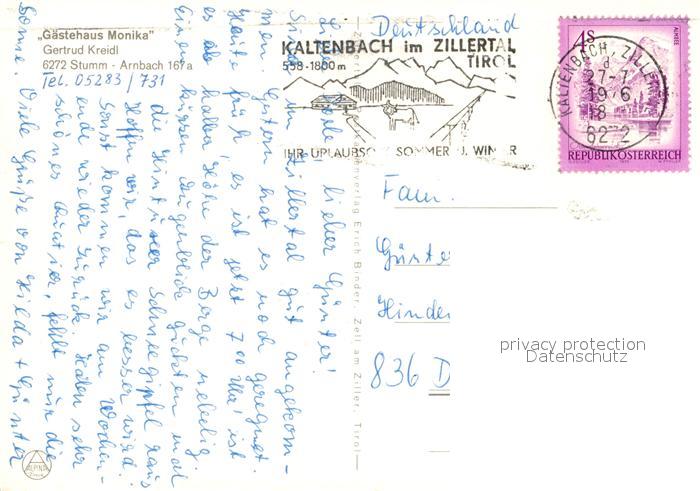 „Gästehaus Monika"
Gertrud Kreidl
6272 Stumm - Arnbach 167a
Tel. 05283/731
Deutschland
KALTENBACH im ZILLERTAL
TIROL
558-1800 m
IHR URLAUBSORT SOMMER U. WINTER
KALTENBACH, ZILLERTAL
d
27-7
19 6
18
6272
4s
ALMSEE
REPUBLIK ÖSTERREICH
Fam.
Günte
Hinde
836 D
privacy protection
Datenschutz
lieber Günter!
Sind im Zillertal gut angekom-
men. Gestern hat es noch geregnet.
Heute früh, es ist jetzt 7 00 Uhr ist
es ab halber Höhe der Berge nebelig.
Einen kurzen Augenblick guckten mal
die Hintertuxer Schneegipfel raus
Hoffen wir, das es besser wird.
Sonst kommen wir am Wochen-
ende wieder zurück. Haben sehr
schönes Quartier, fehlt nur die
Sonne. Viele Grüße von Hilda + Günter
Erich Binder, Zell am Ziller, Tirol
ALPINA